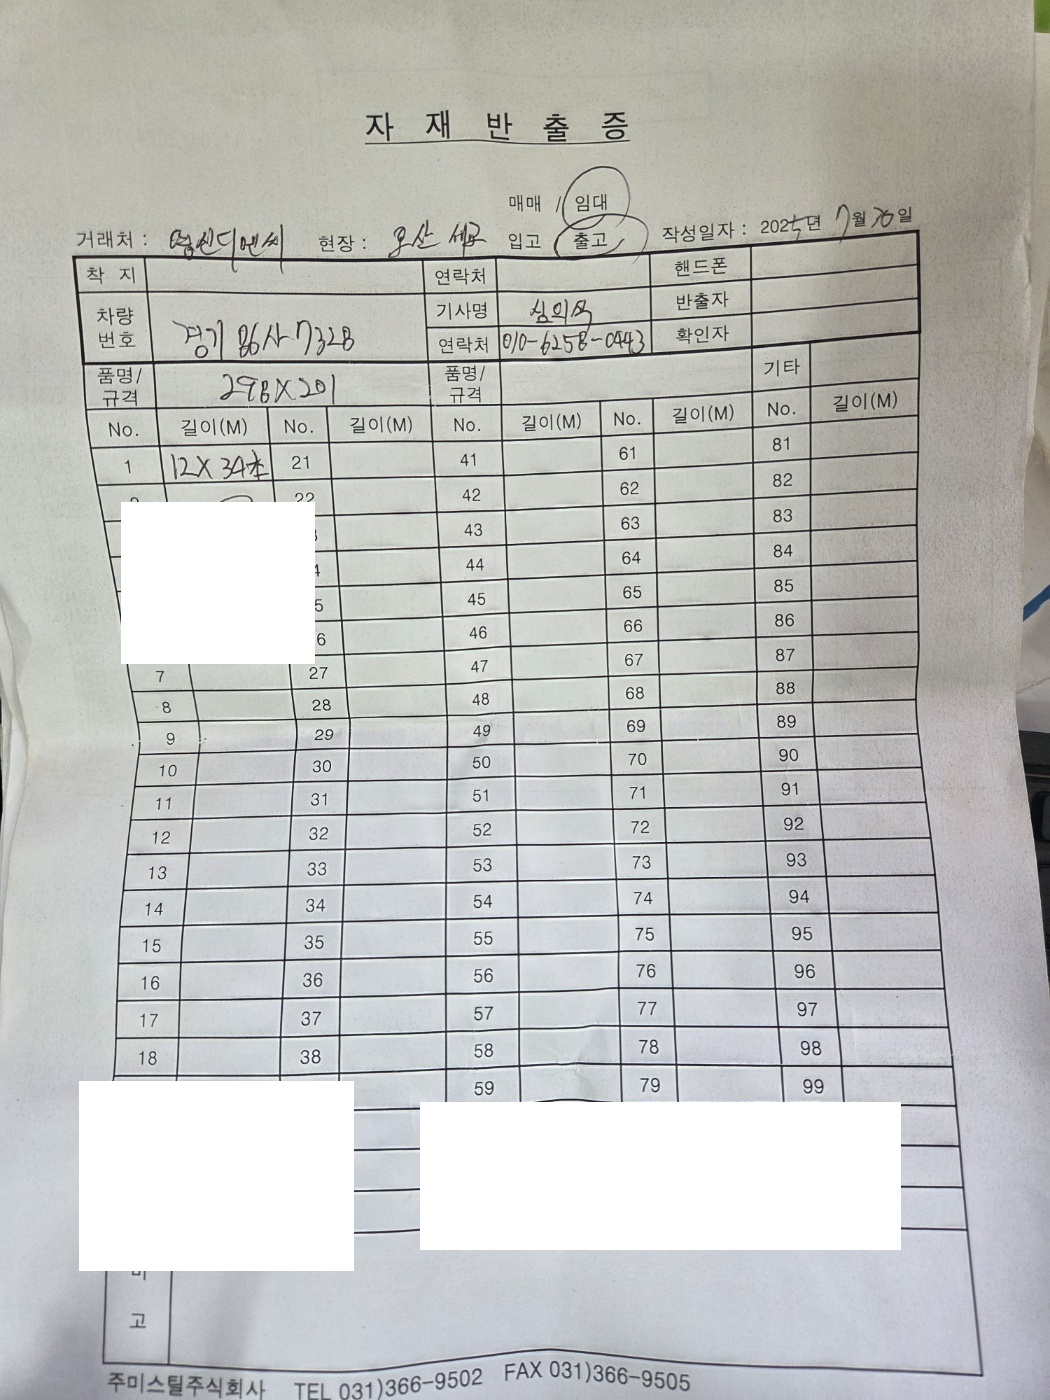 자 재 반 출 증
매매 / 임대
거래처 : 영신디엔씨 현장 : 오산 세교 입고 출고 작성일자 : 2025년 7월 26일
착 지 연락처 핸드폰
차량 번호 경기 86사 7328 기사명 심의섭 반출자
연락처 010-6258-0443 확인자
품명/ 규격 298X201 품명/ 규격 기타
No. 길이(M) No. 길이(M) No. 길이(M) No. 길이(M) No. 길이(M)
1 12X34本 21 41 61 81
22 42 62 82
43 63 83
44 64 84
45 65 85
46 66 86
7 27 47 67 87
8 28 48 68 88
9 29 49 69 89
10 30 50 70 90
11 31 51 71 91
12 32 52 72 92
13 33 53 73 93
14 34 54 74 94
15 35 55 75 95
16 36 56 76 96
17 37 57 77 97
18 38 58 78 98
59 79 99
비
고
주미스틸주식회사 TEL 031)366-9502 FAX 031)366-9505